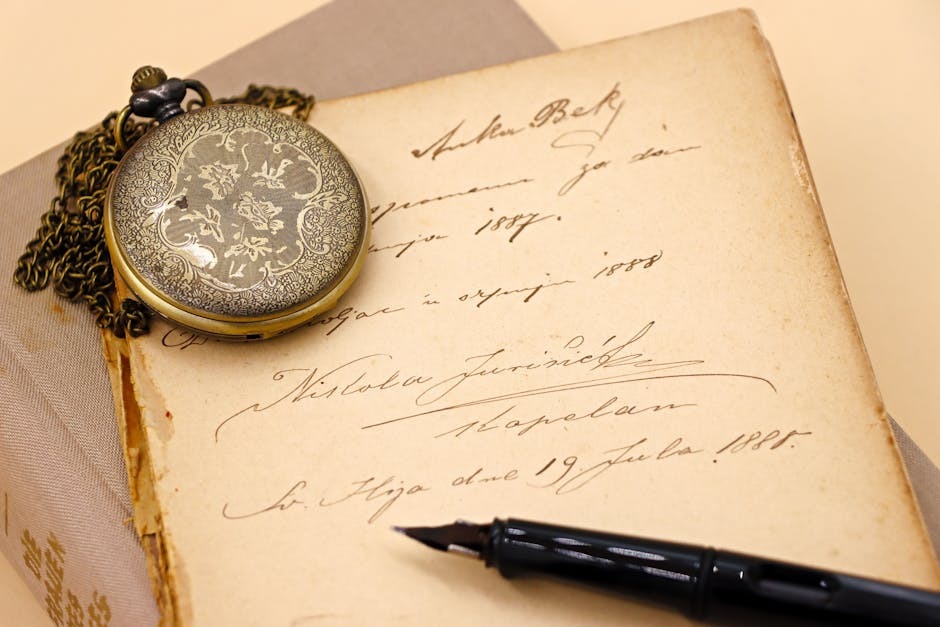 Anka Bek
uspomenu za dan
1887.
u srpnju 1888
Nikola Jurišić
Kapelan
Sv. Ilija dne 19. Jula 1888.